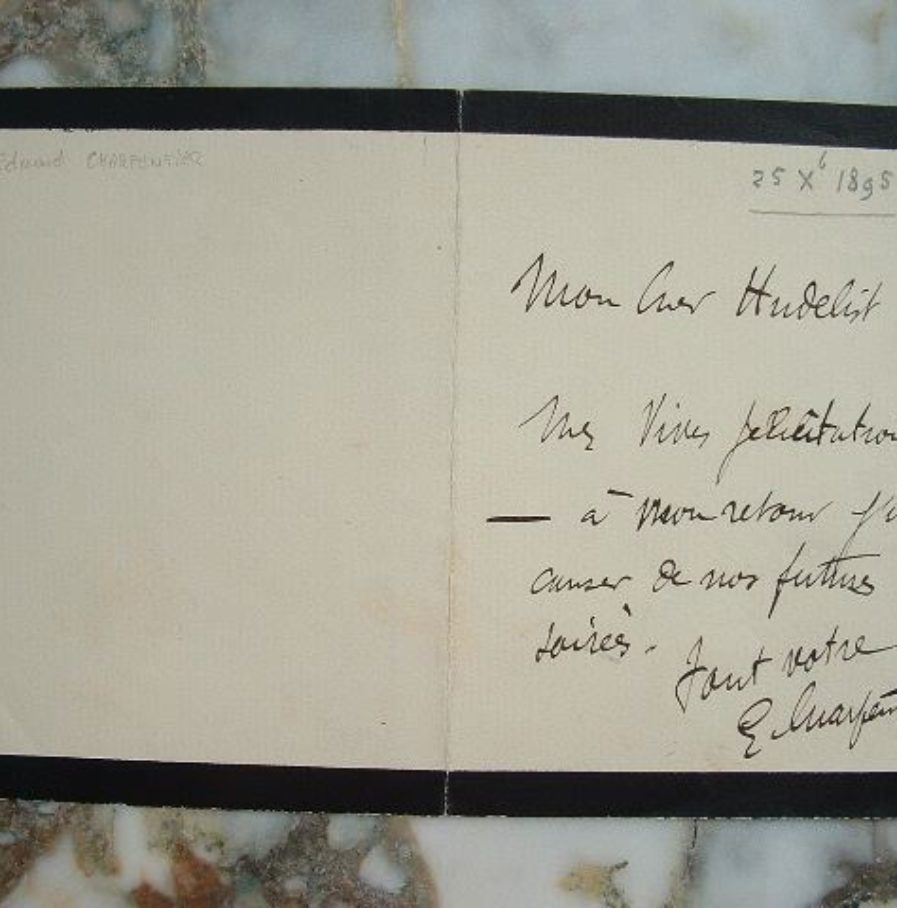 Edmond CHARPENTIER
25 Xb 1895
Mon Cher Hudelist
Mes Vives félicitation
— à mon retour j'i
causer de nos futures
soirées.
Tout votre
E Charpen